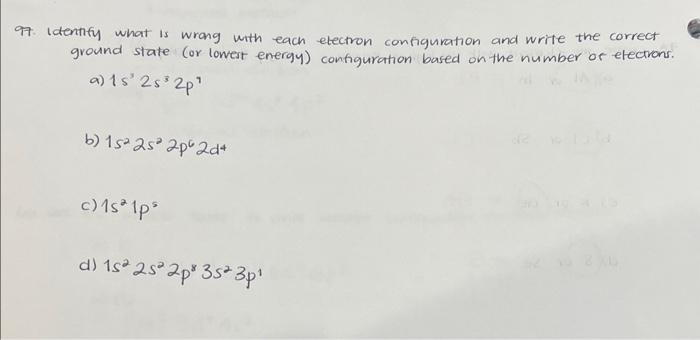 97. Identify what is wrong with each electron configuration and write the correct
ground state (or lowest energy) configuration based on the number of electrons.
a) 1s³ 2s³ 2p⁷
b) 1s² 2s² 2p⁶ 2d⁴
c) 1s² 1p⁵
d) 1s² 2s² 2p⁸ 3s² 3p¹